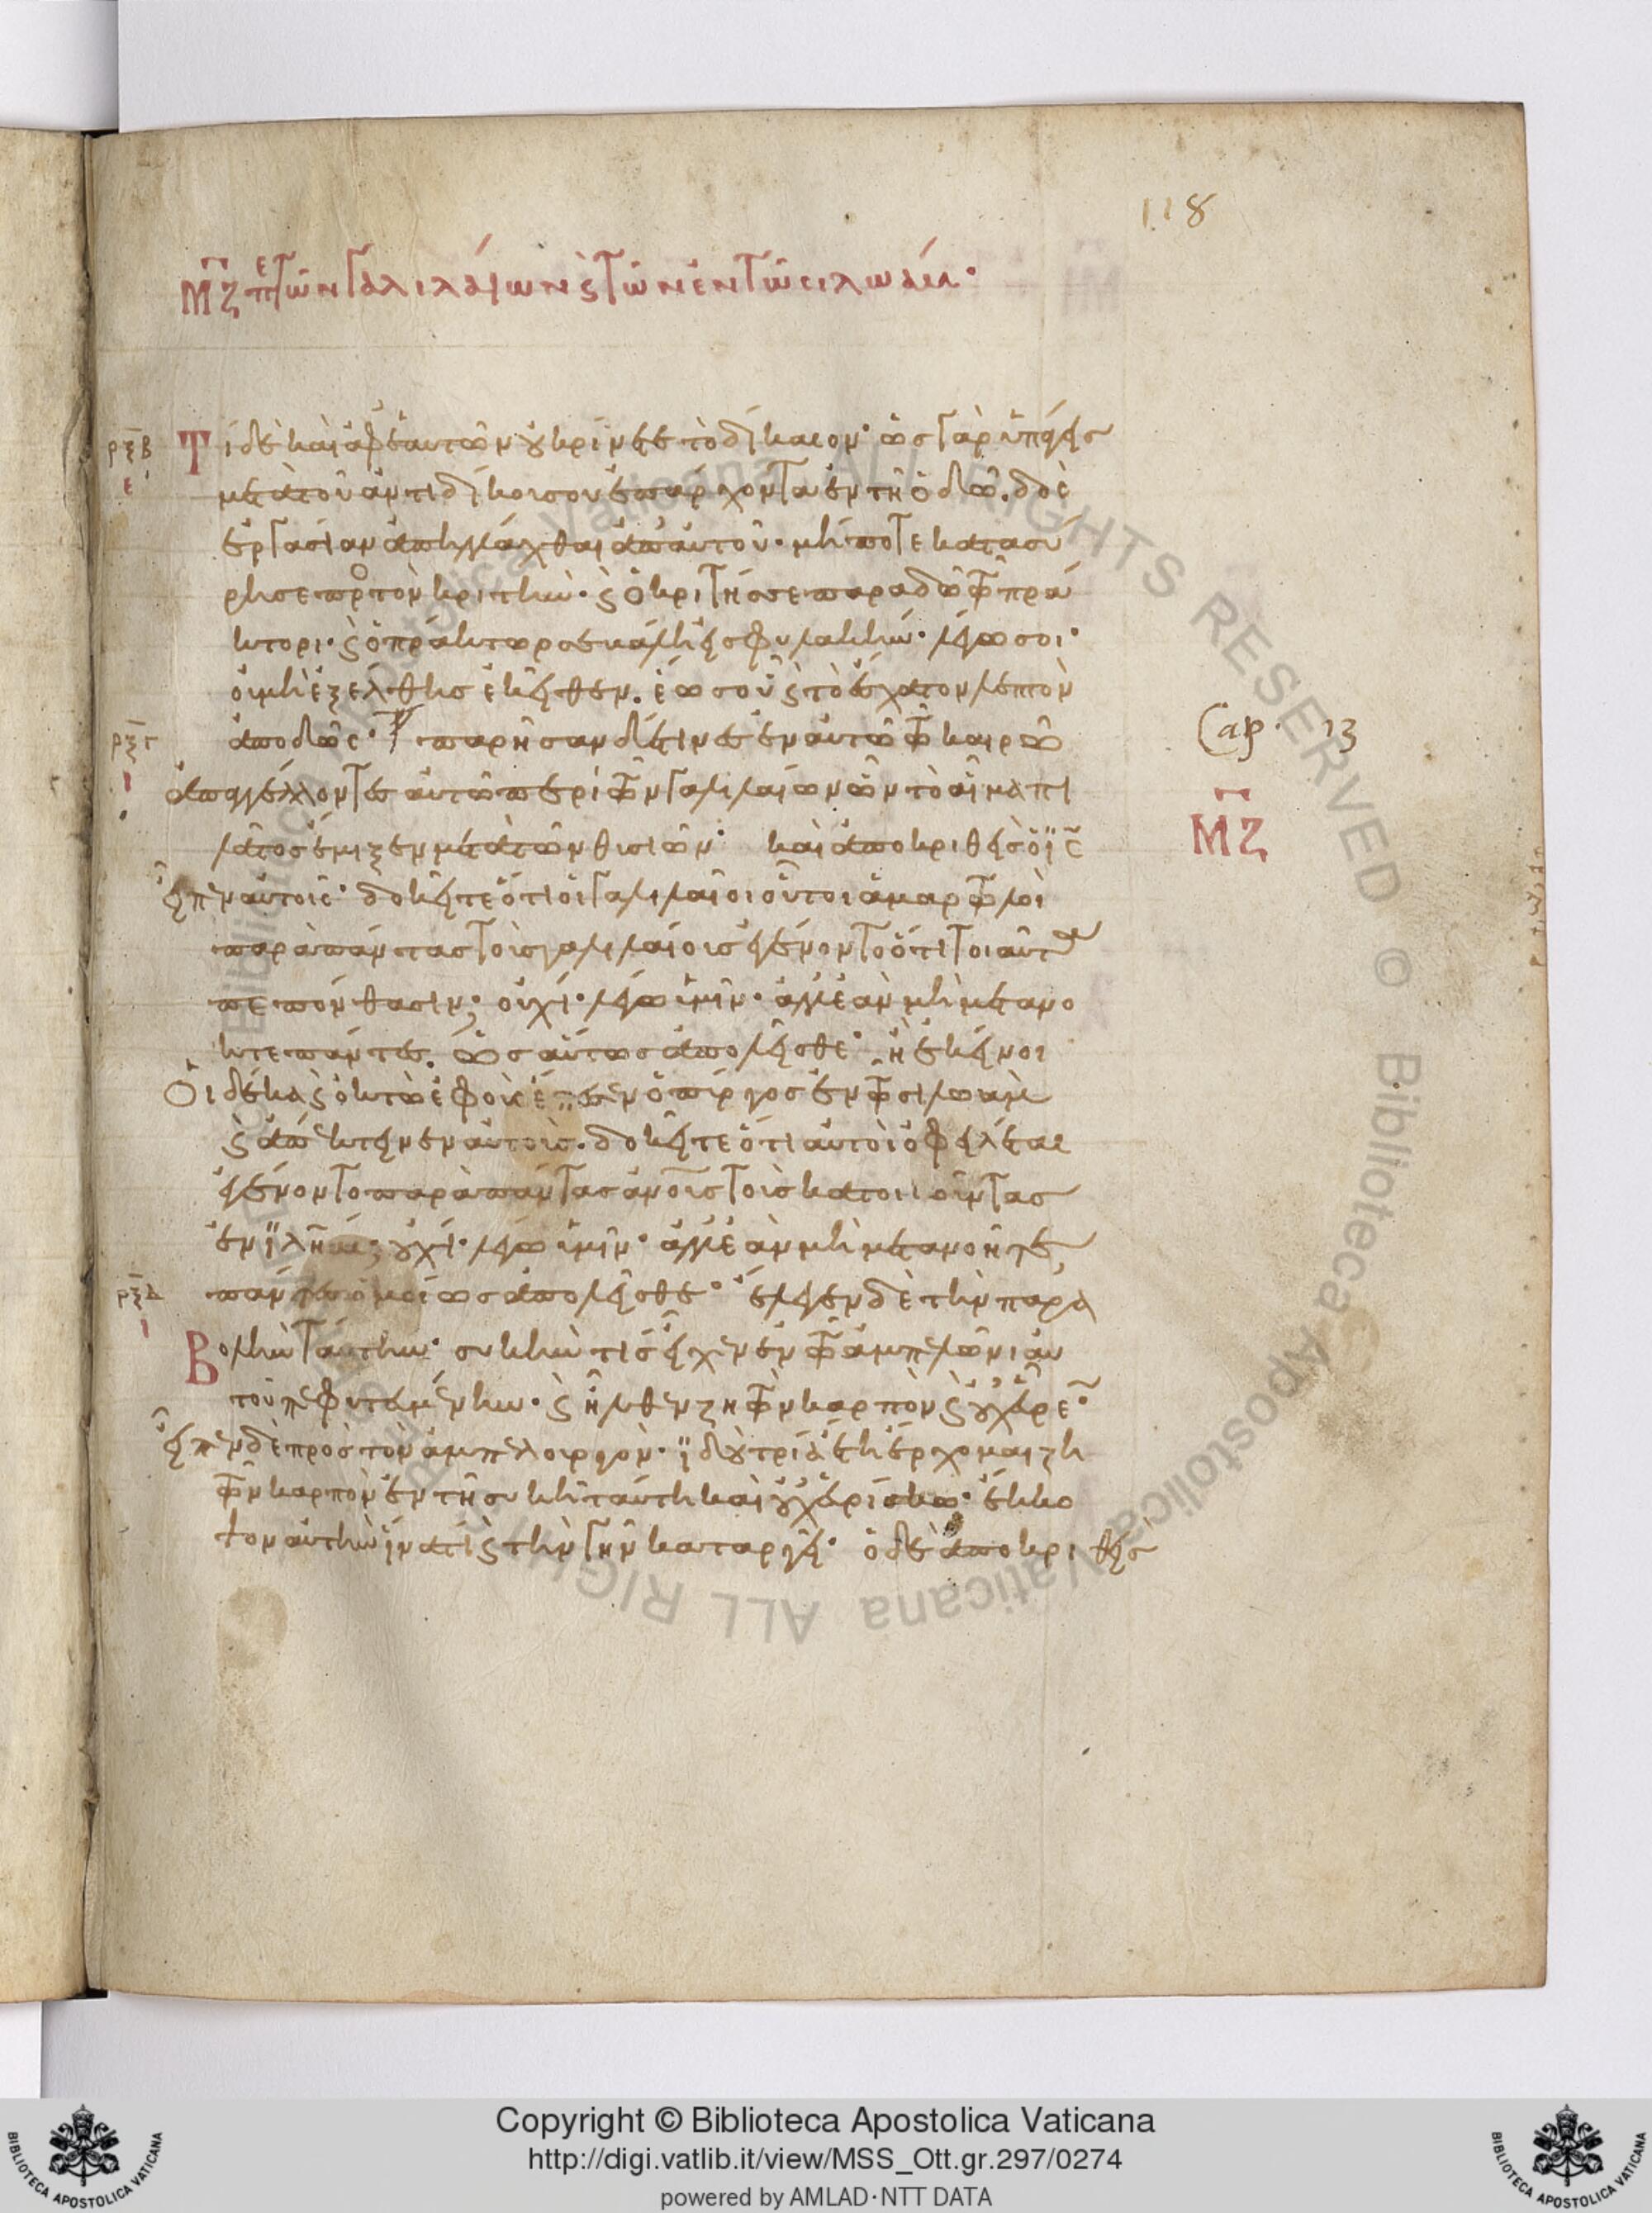 118
ΜΖ πε τῶν Γαλιλαίων ϛ τῶν ἐν τῶ Σιλωάμ·
ρξβ Τί δὲ καὶ ἀφ' ἑαυτῶν οὐ κρίνετε τὸ δίκαιον· ὡς γὰρ ὑπάγεις
ε μετὰ τοῦ ἀντιδίκου σου ἐπ' ἄρχοντα ἐν τῆ ὁδῶ. δὸς
ἐργασίαν ἀπηλλάχθαι ἀπ' αὐτοῦ· μήποτε κατασύ
ρη σε πρὸς τὸν κριτὴν· ϛ ὁ κριτής σε παραδῶ τῶ πρά
κτορι· ϛ ὁ πράκτωρ σε βάλη εἰς φυλακήν· λέγω σοι·
οὐ μὴ ἐξέλθης ἐκεῖθεν. ἕως οὗ ϛ τὸ ἔσχατον λεπτὸν
ρξγ ἀποδῶς· παρῆσαν δέ τινες ἐν αὐτῶ τῶ καιρῶ
Cap. 13
ι ἀπαγγέλλοντες αὐτῶ περὶ τῶν Γαλιλαίων ὧν τὸ αἷμα πι
ΜΖ
λάτος ἔμιξεν μετὰ τῶν θυσιῶν· καὶ ἀποκριθεὶς ὁ ις
εἶπεν αὐτοῖς· δοκεῖτε ὅτι οἱ Γαλιλαῖοι οὗτοι ἁμαρτωλοὶ
παρὰ πάντας τοὺς γαλιλαίους ἐγένοντο ὅτι τοιαῦτα
πεπόνθασιν; οὐχί· λέγω ὑμῖν· ἀλλ' ἐὰν μὴ μετανο
ῆτε πάντες. ὡσαύτως ἀπολεῖσθε· ἢ ἐκεῖνοι
Οἱ δέκα ϛ ὀκτὼ ἐφ' οὓς ἔπεσεν ὁ πύργος ἐν τῶ σιλωὰμ
ϛ ἀπέκτεινεν αὐτοὺς. δοκεῖτε ὅτι αὐτοὶ ὀφειλέται
ἐγένοντο παρὰ πάντας ανους τοὺς κατοικοῦντας
ἐν ϊλημ; οὐχί· λέγω ὑμῖν· ἀλλ' ἐὰν μὴ μετανοῆτε,
ρξδ πάντες ὁμοίως ἀπολεῖσθε· ἔλεγεν δὲ τὴν παρα
ι Βολὴν ταύτην· συκῆν τὶς εἶχεν ἐν τῶ ἀμπελῶνι αὐ
τοῦ πεφυτευμένην· ϛ ἦλθεν ζητῶν καρπὸν ϛ οὐχ εὗρεν·
εἶπεν δὲ πρὸς τὸν ἀμπελουργὸν· ϊδοὺ τρία ἔτη ἔρχομαι ζη
τῶν καρπὸν ἐν τῆ συκῆ ταύτη καὶ οὐχ εὑρίσκω· ἔκκο
ψον αὐτὴν ἵνα τί ϛ τὴν γῆν καταργεῖ· ὁ δὲ ἀποκριθεὶς
Biblioteca Apostolica Vaticana ALL RIGHTS RESERVED ©
Biblioteca Apostolica Vaticana ALL RIGHTS
Copyright © Biblioteca Apostolica Vaticana
http://digi.vatlib.it/view/MSS_Ott.gr.297/0274
powered by AMLAD·NTT DATA
BIBLIOTECA APOSTOLICA VATICANA
BIBLIOTECA APOSTOLICA VATICANA